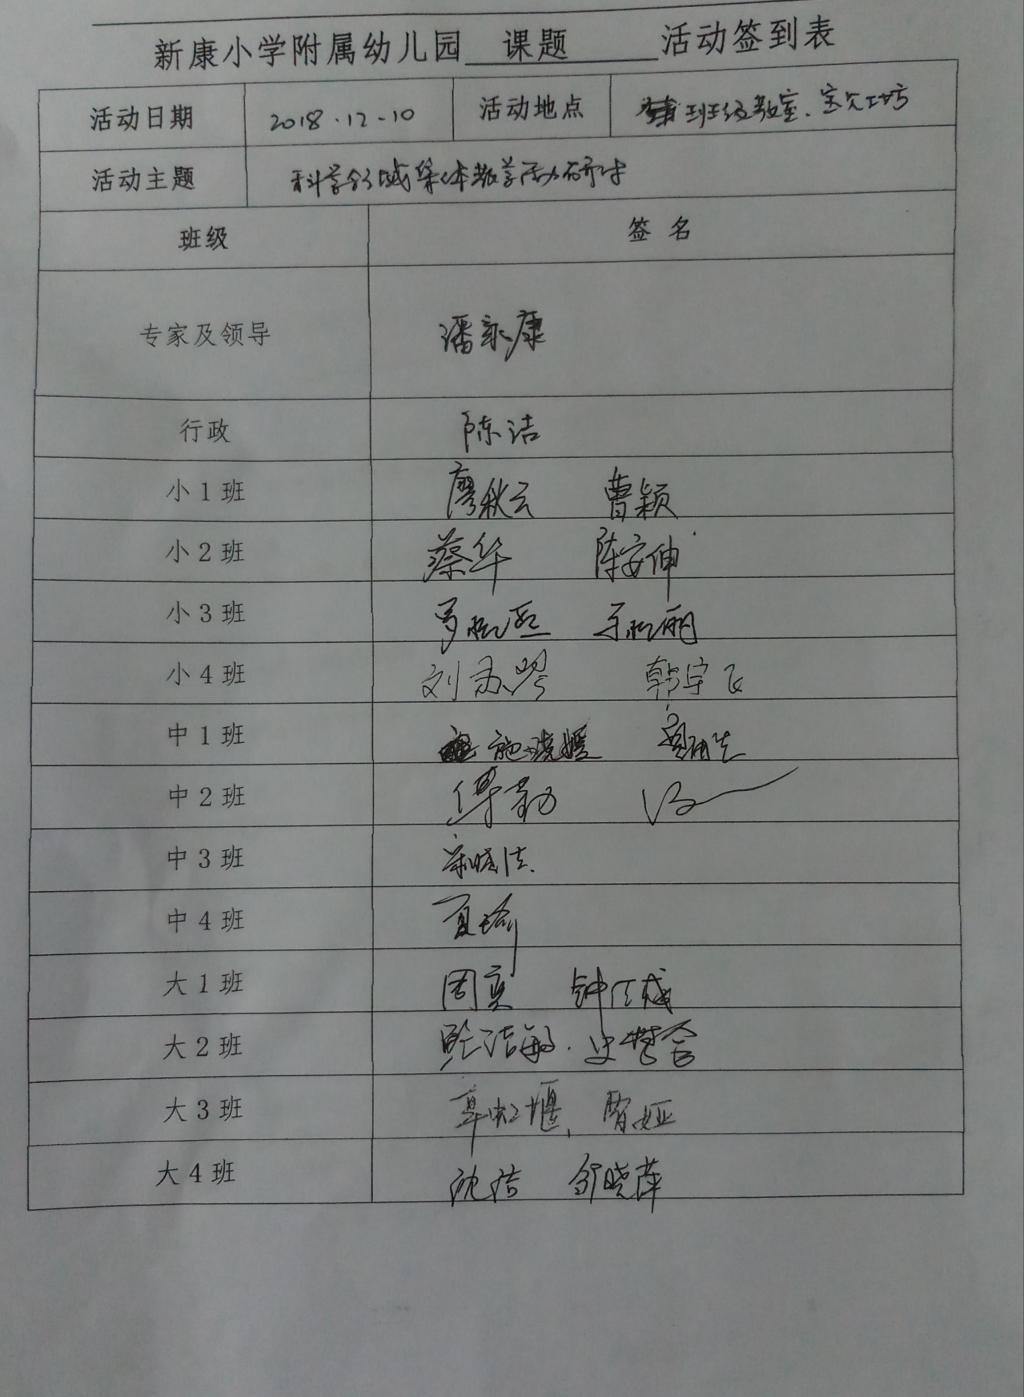 新康小学附属幼儿园 课题 活动签到表
活动日期 2018.12-10 活动地点 班级教室.宝贝工坊
活动主题 科学领域集体教学活动研讨
班级 签名
专家及领导 潘永康
行政 陈洁
小1班 廖秋云 曹颖
小2班 蔡华 陈安伸
小3班
小4班 刘苏琴 韩宇飞
中1班 施晓媛
中2班 傅勤
中3班
中4班 夏瑜
大1班 周奕
大2班 洁敏.
大3班 章虹堰, 贺娅
大4班 沈洁 邹晓萍